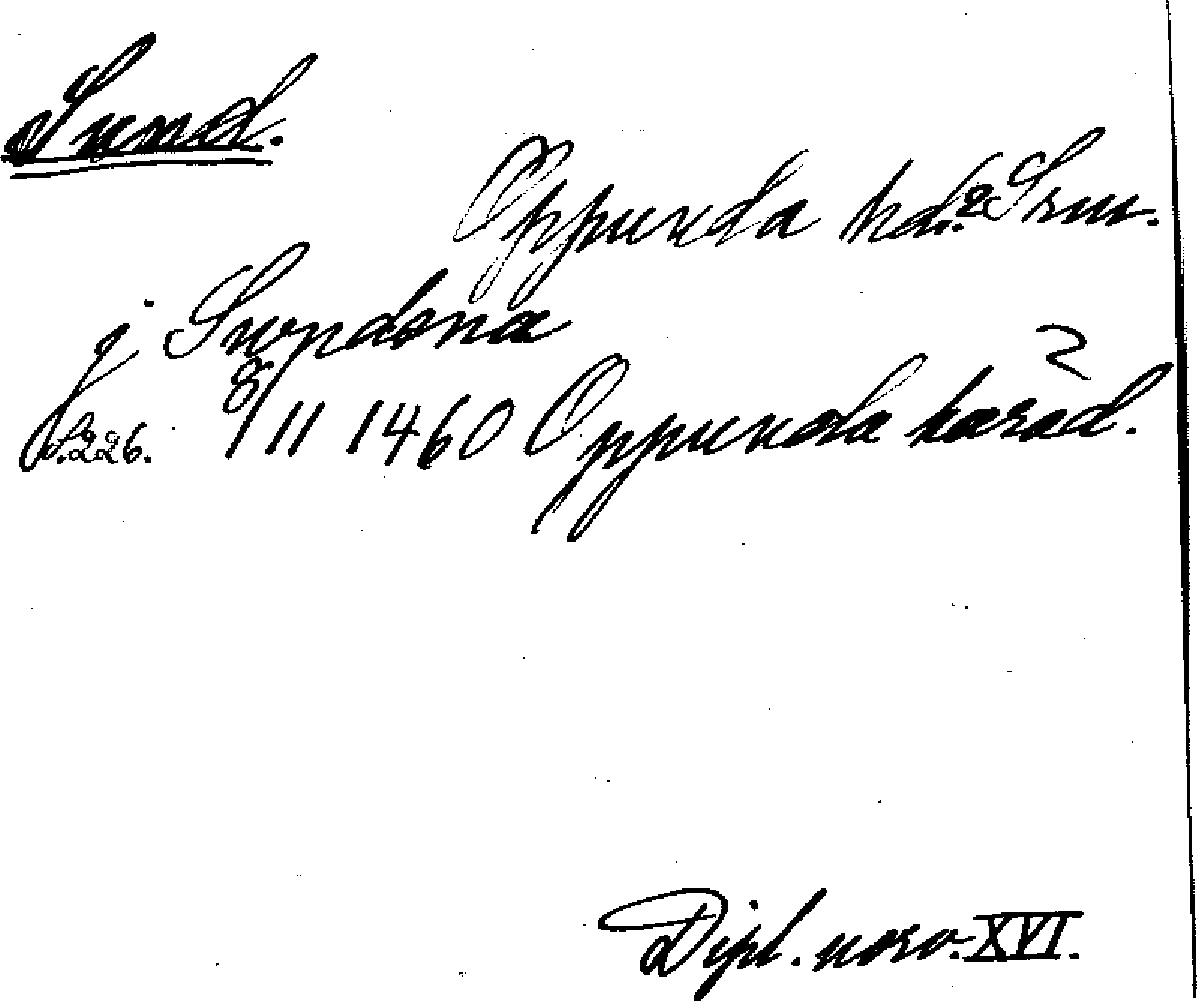 Sund.
Oppunda hd. ? Srm.
j Swndena
S. 226. 8/11 1460 Oppunda hærad.
Dipl. norv. XVI.